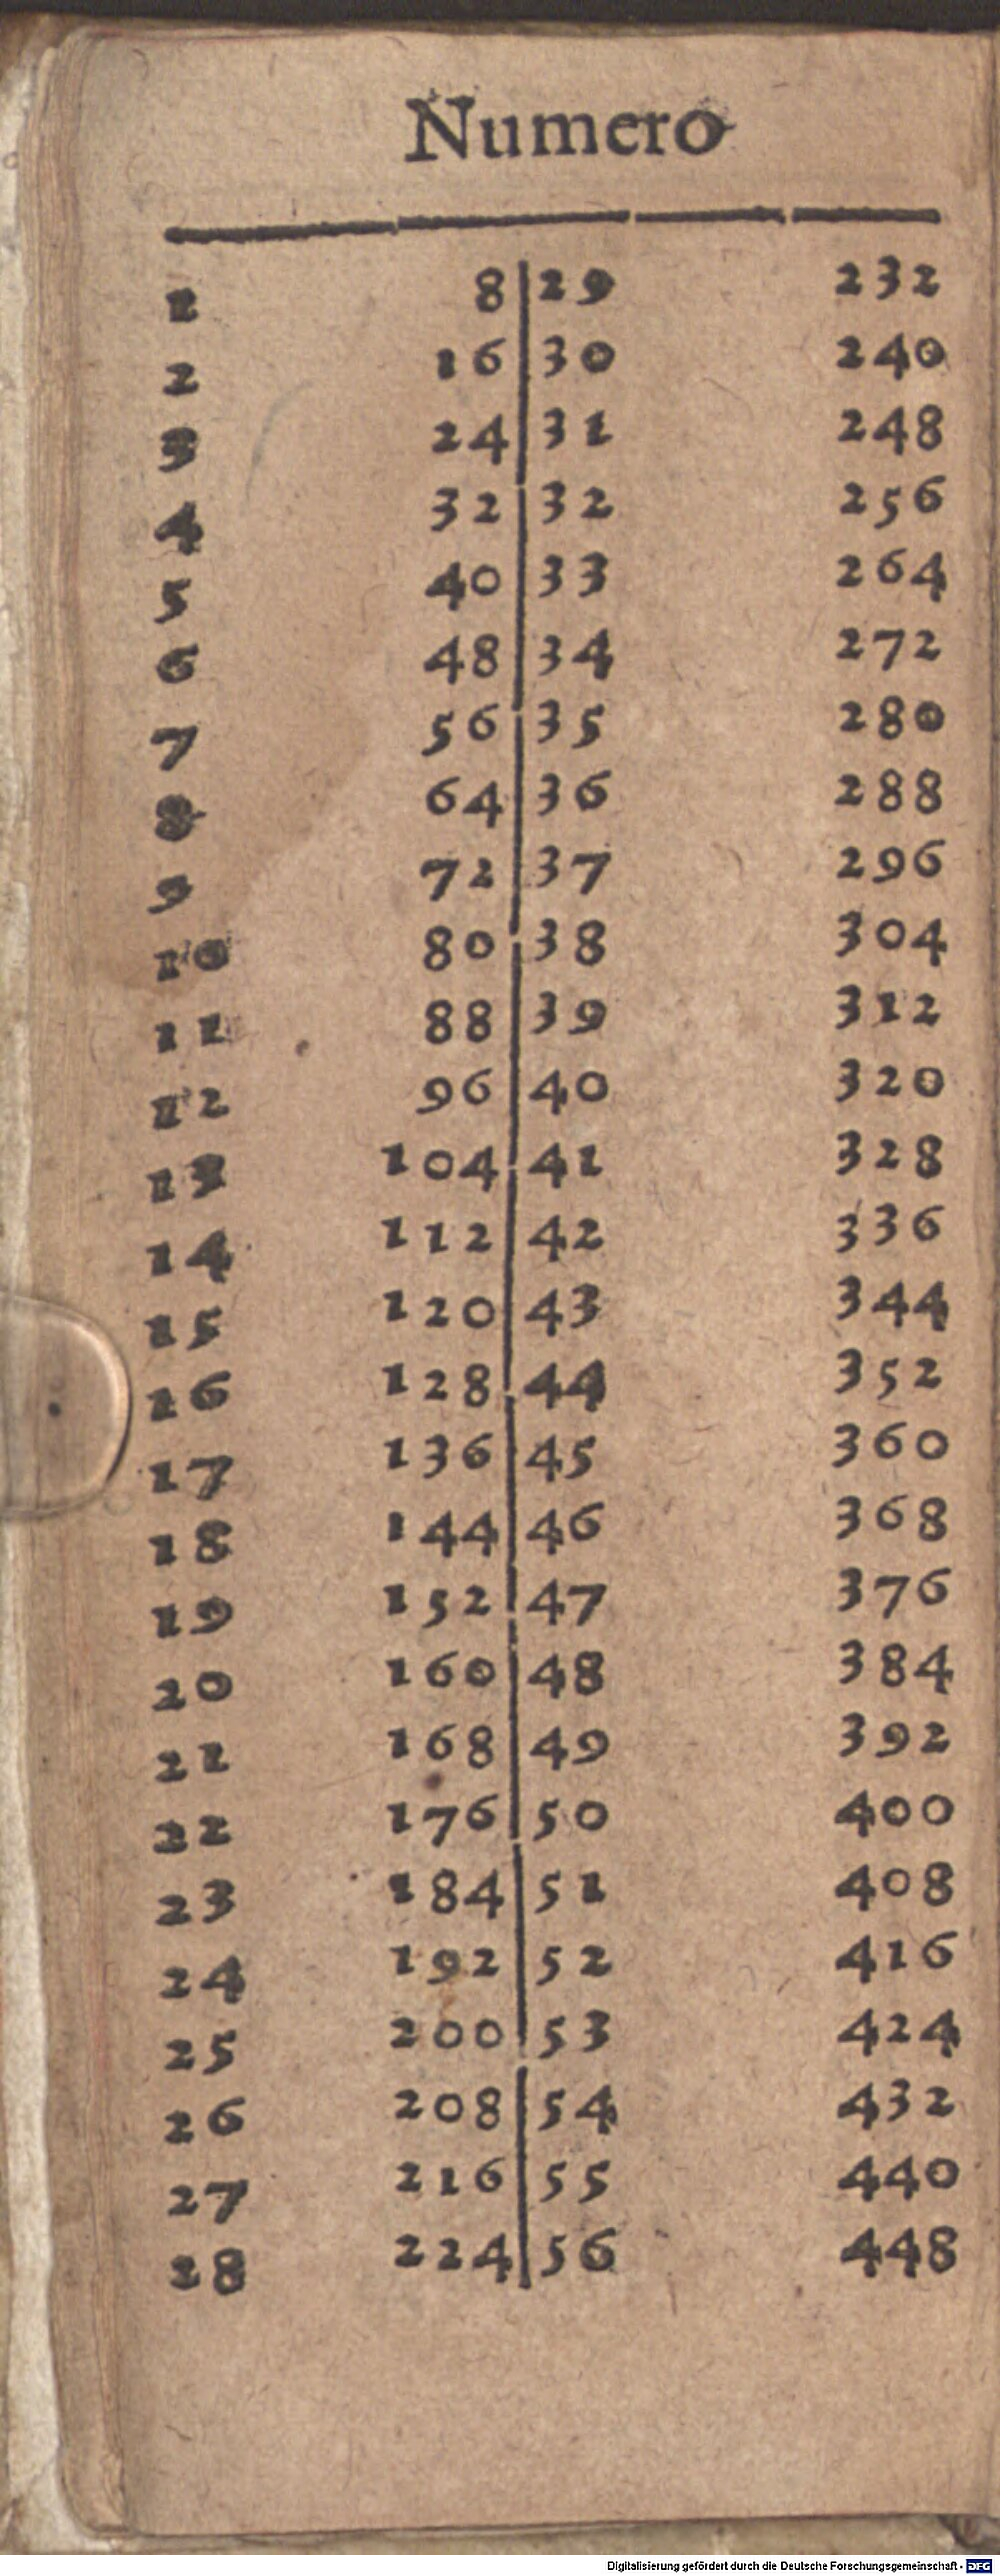 Numero
1 8 29 232
2 16 30 240
3 24 31 248
4 32 32 256
5 40 33 264
6 48 34 272
7 56 35 280
8 64 36 288
9 72 37 296
10 80 38 304
11 88 39 312
12 96 40 320
13 104 41 328
14 112 42 336
15 120 43 344
16 128 44 352
17 136 45 360
18 144 46 368
19 152 47 376
20 160 48 384
21 168 49 392
22 176 50 400
23 184 51 408
24 192 52 416
25 200 53 424
26 208 54 432
27 216 55 440
28 224 56 448
Digitalisierung gefördert durch die Deutsche Forschungsgemeinschaft - DFG